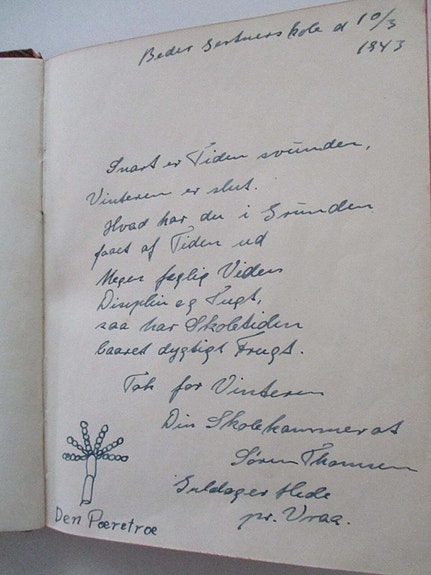 Beder Gertnerskole d 10/3
1943
Snart er Tiden svunden,
Vinteren er slut.
Hvad har du i Grunden
faaet af Tiden ud
Megen faglig Viden
Disiplin og Tugt,
saa har Skoletiden
baaret dygtigt Frugt.
Tak for Vinteren
Din Skolekammerat
Søren Thomsen
Guldager Hede
pr. Vraa.
Den Pæretræ